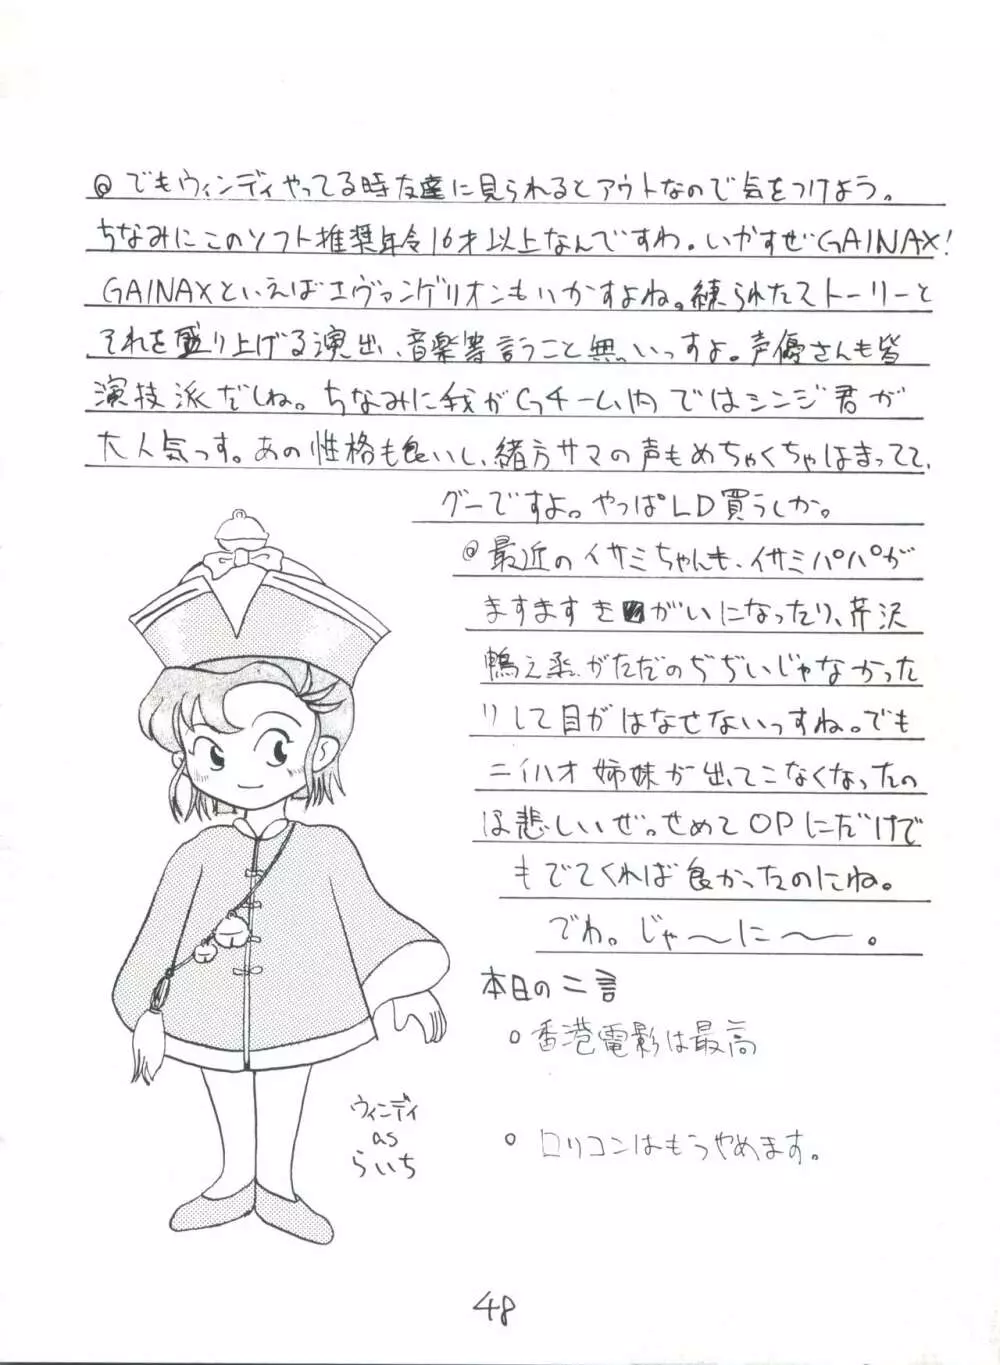 @でもウィンディやってる時友達に見られるとアウトなので気をつけよう。
ちなみにこのソフト推奨年令16才以上なんですわ。いかすぜGAINAX!
GAINAXといえばエヴァンゲリオンもいかすよね。練られたストーリーと
それを盛り上げる演出、音楽等言うこと無いっすよ。声優さんも皆
演技派だしね。ちなみに我がGチーム内ではシンジ君が
大人気っす。あの性格も良いし、緒方サマの声もめちゃくちゃはまってて、
グーですよ。やっぱLD買うしか。
@最近のイサミちゃんも、イサミパパが
ますますきがいになったり、芹沢
鴨之丞がただのぢぢいじゃなかった
りして目がはなせないっすね。でも
ニイハオ姉妹が出てこなくなったの
は悲しいぜ。せめてOPにだけで
もでてくれば良かったのにね。
でわ。じゃ〜に〜。
本日の二言
○香港電影は最高
○ロリコンはもうやめます。
ウィンディ
as
らいち
48